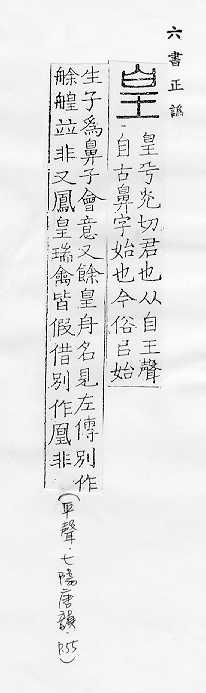 六書正譌
皇
皇乎光切君也从自王聲
自古鼻字始也今俗㠯始
生子爲鼻子會意又餘皇舟名見左傳別作
艅艎並非又鳳皇瑞禽皆假借別作凰非
(平聲.七陽唐韻.P.55.)